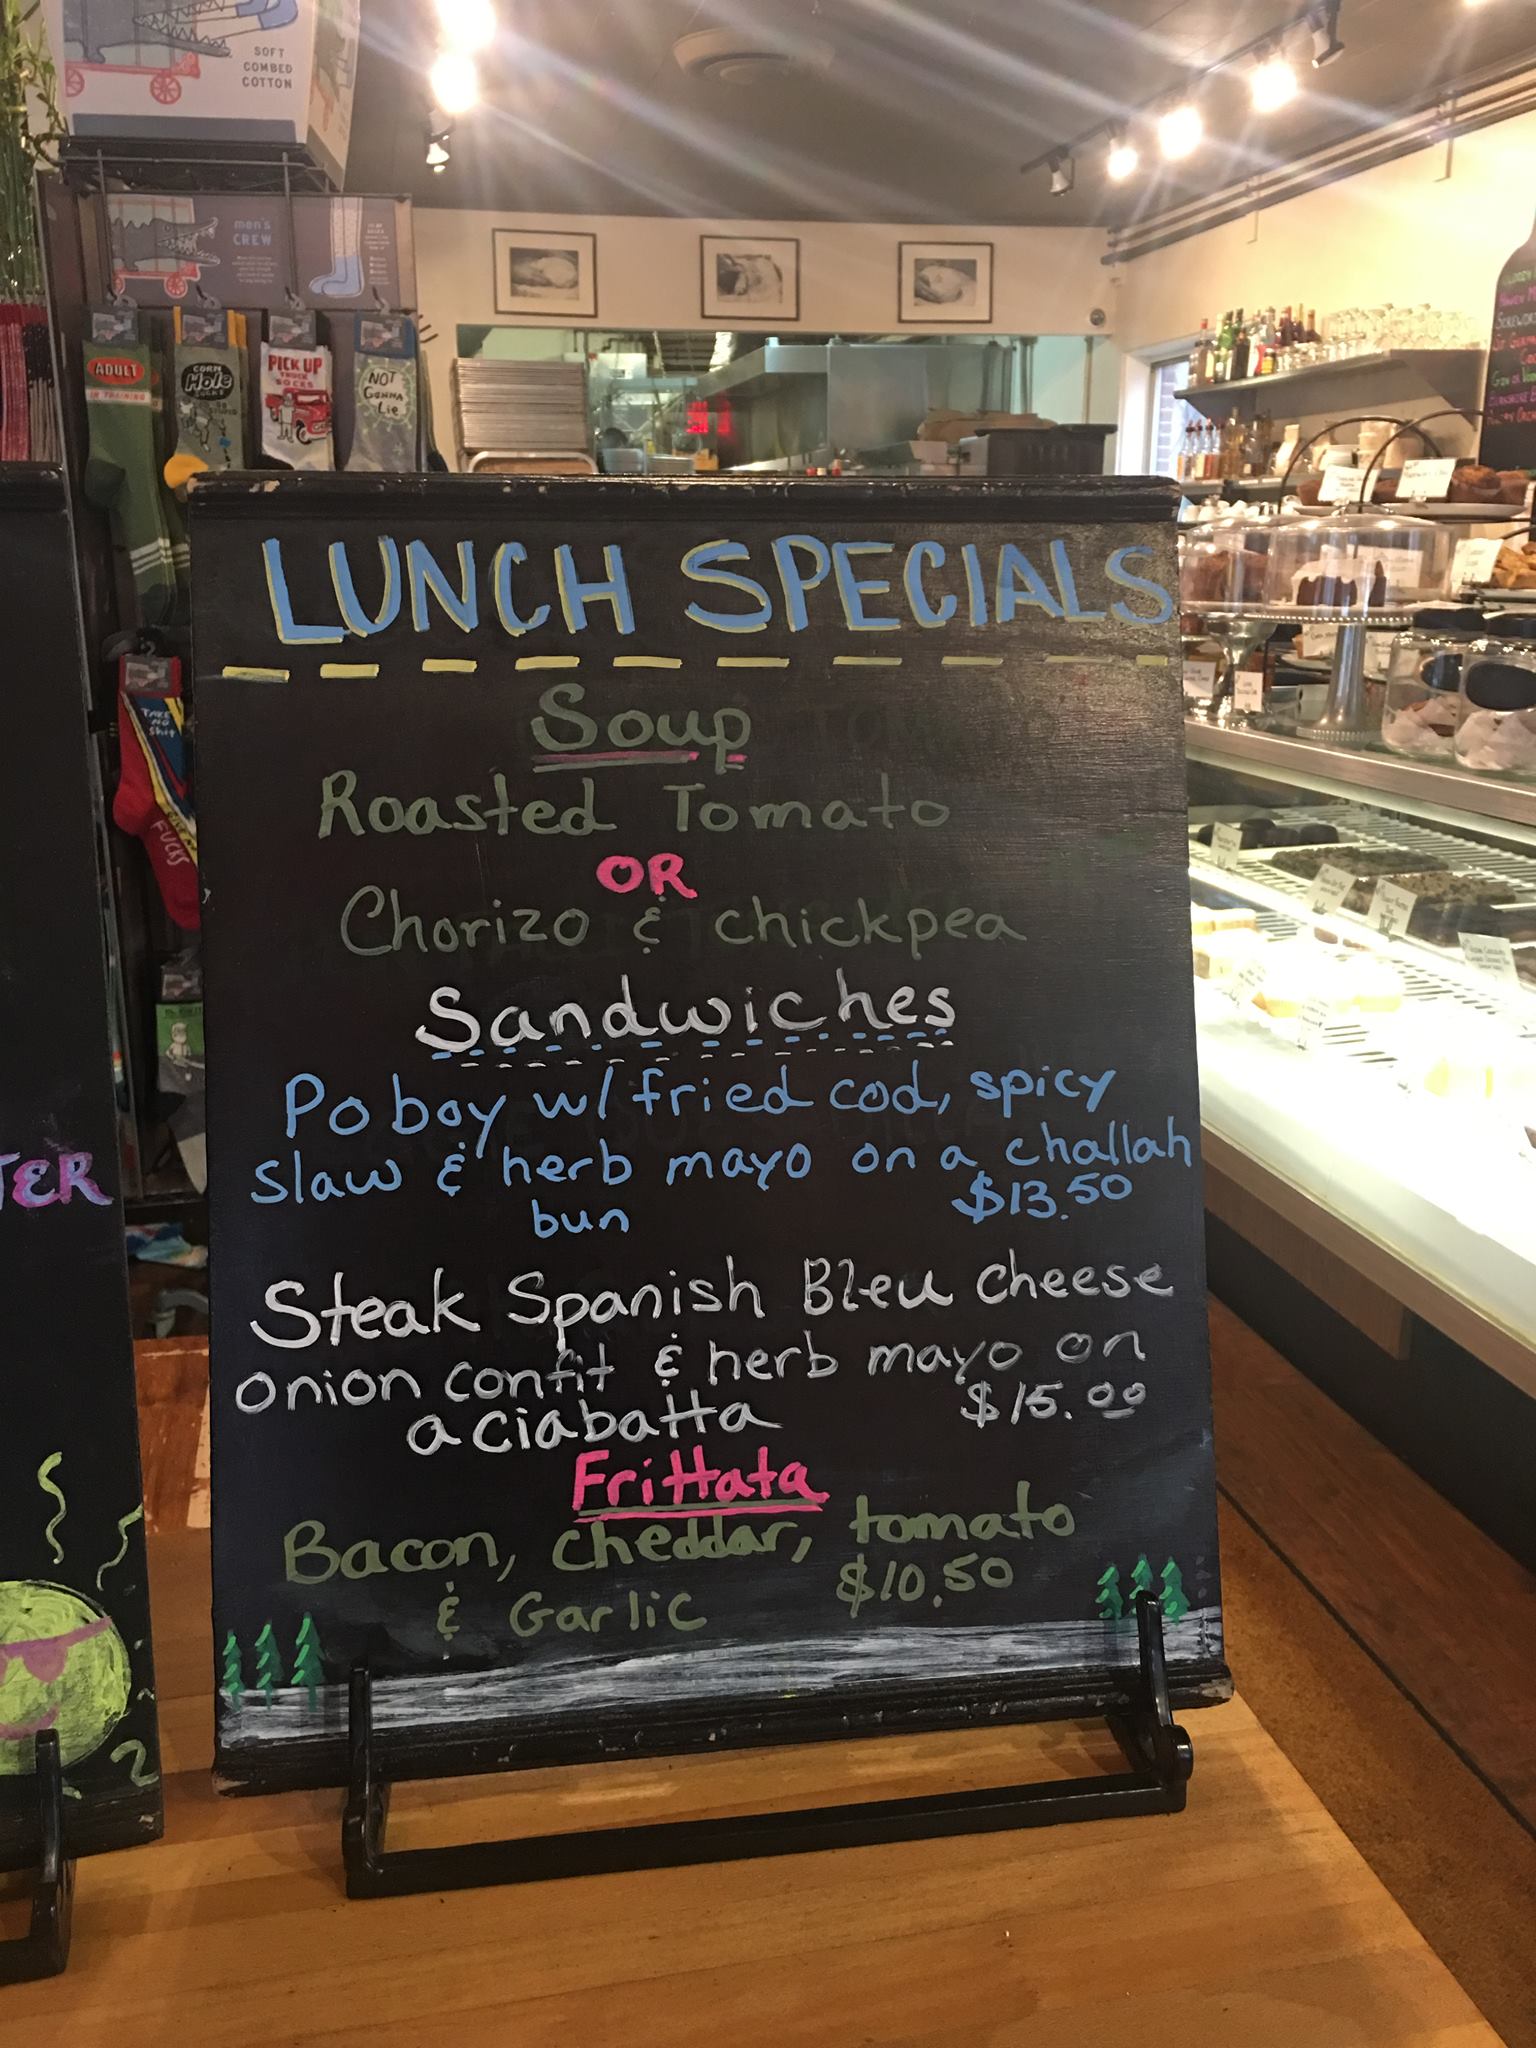 SOFT
COMBED
COTTON
men's
CREW
ADULT
IN TRAINING
CORN
Hole
SOCKS
PICK UP
TRUCK
SOCKS
NOT
GONNA
Lie
TAKE
NO
Shit
FUCKS
TER
2
LUNCH SPECIALS
Soup
Roasted Tomato
OR
Chorizo & chickpea
Sandwiches
Po boy w/ fried cod, spicy
slaw & herb mayo on a challah
bun $13.50
Steak Spanish Bleu cheese
onion confit & herb mayo on
a ciabatta $15.00
Frittata
Bacon, cheddar, tomato
& Garlic $10.50